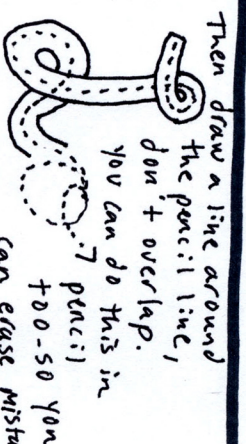 Then draw a line around
the pencil line,
don't overlap.
you can do this in
pencil
too-so you
can erase